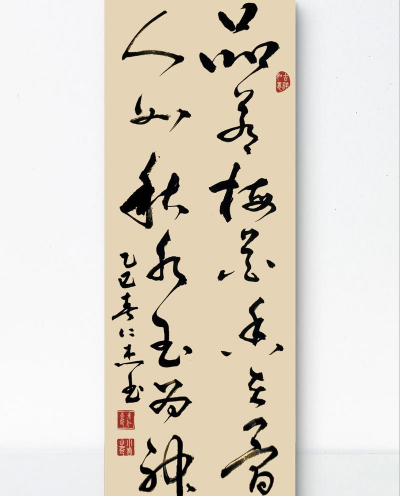 品若梅花香在骨
人如秋水玉为神
乙巳春仁杰书